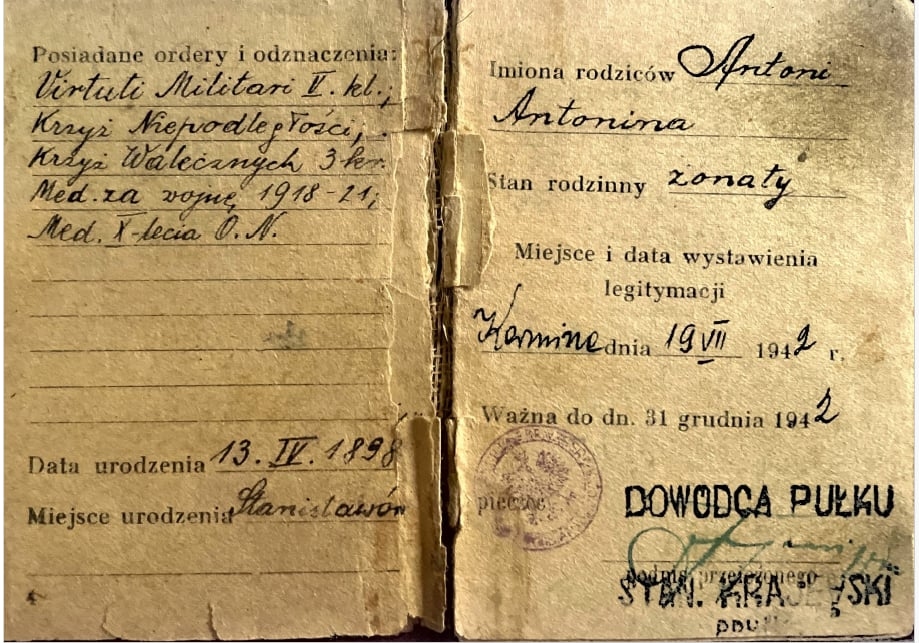 Posiadane ordery i odznaczenia:
Virtuti Militari V. kl.;
Krzyż Niepodległości,
Krzyż Walecznych 3 kr.
Med. za wojnę 1918-21;
Med. X-lecia O. N.
Data urodzenia 13. IV. 1898
Miejsce urodzenia Stanisławów
4
Imiona rodziców Antoni
Antonina
Stan rodzinny żonaty
Miejsce i data wystawienia
legitymacji
Kermine dnia 19 VII 1942 r.
Ważna do dn. 31 grudnia 1942
pieczęć
DOWODCA PUŁKU
podpis przełożonego
STAN. KRAJEWSKI
ppułk